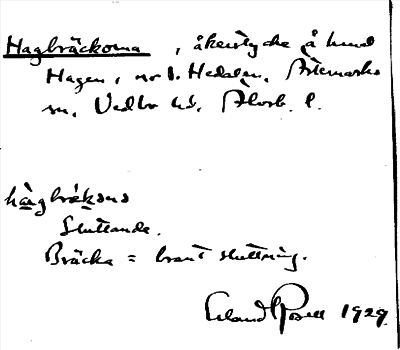 Hagbräckorna, åkerstycke å hmd
Hagen, nr 1. Hedalen, Ärtemarks
sn, Vedbo hd, Älvsb. l.
hàgbräkɔnɔ
Sluttande.
Bräcka = brant sluttning.
Erland Rosell 1929.